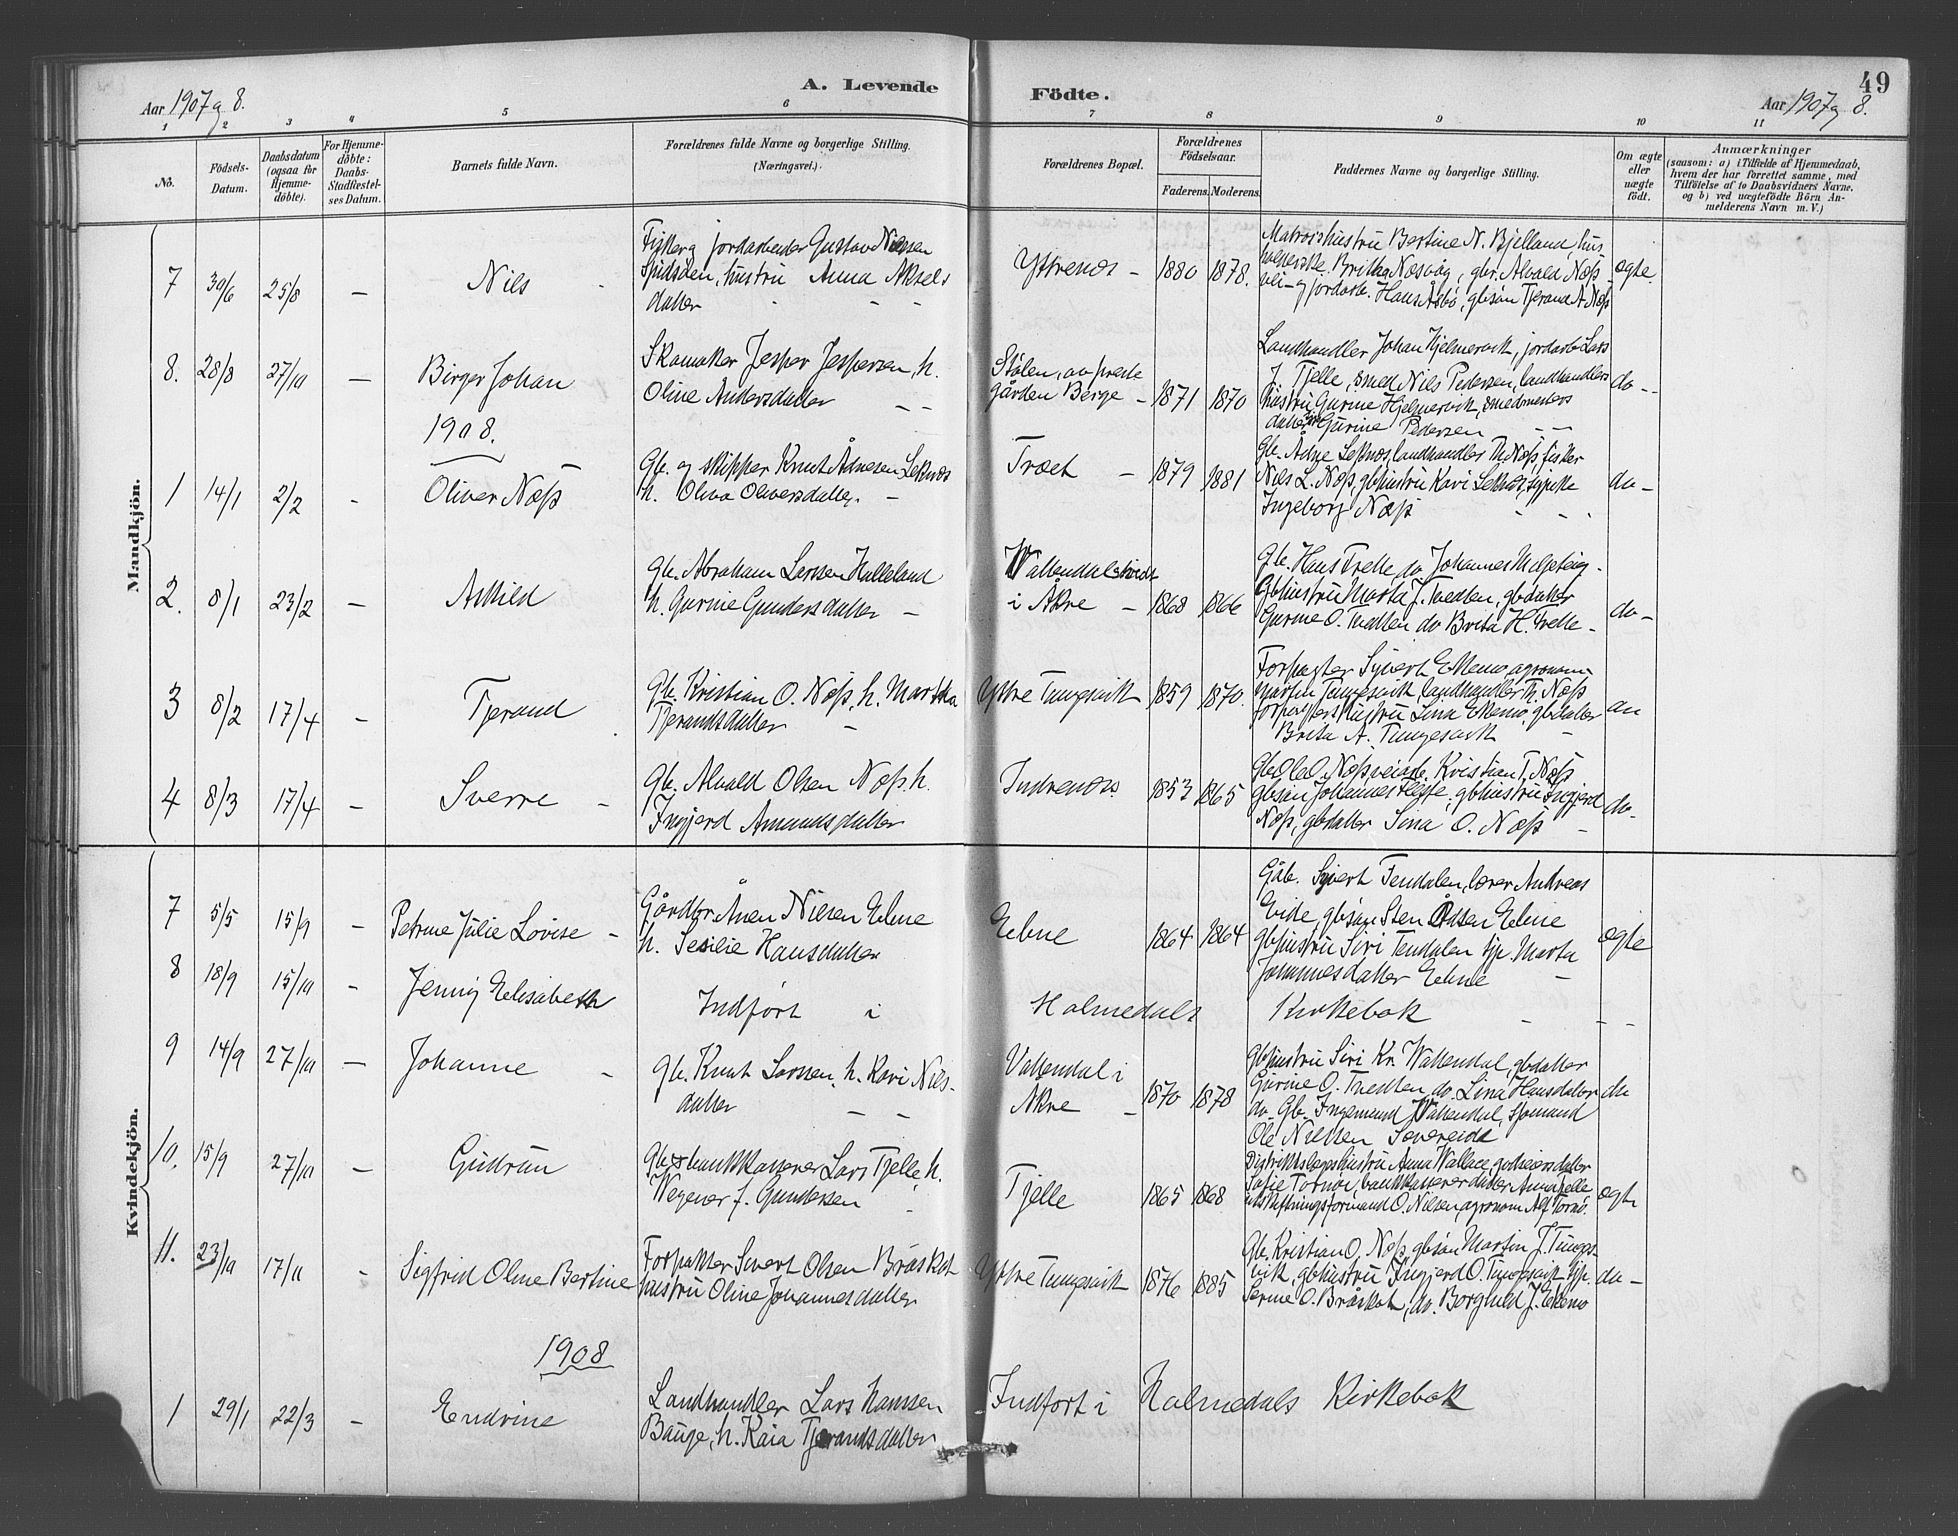 49
A. Levende Födte.
Aar 1907 og 8.
Aar 1907 og 8.
1 2 3 4 5 6 7 8 9 10 11
No.
Födsels-Datum.
Daabsdatum (ogsaa for Hjemme-döbte).
For Hjemme-döbte: Daabs-Stadfæstel-ses Datum.
Barnets fulde Navn.
Forældrenes fulde Navne og borgerlige Stilling. (Næringsvei.)
Forældrenes Bopæl.
Forældrenes Födselsaar.
Faderens. Moderens.
Faddernes Navne og borgerlige Stilling.
Om ægte eller uægte födt.
Anmærkninger
(saasom: a) i Tilfælde af Hjemmedaab,
hvem der har forrettet samme, med
Tilföielse af to Daabsvidners Navne,
og b) ved uægtefödte Börn An-
melderens Navn m. V.)
Mandkjön.
7 30/6 25/8 — Nils
Fisker og jordarbeider Gustav Nilssen
hustru Anna Aksels
datter
Ytrenes – 1880 1878.
Matroshustru Bertine N. Bjelland, hus
Brita Næsvåg, gbr. Alvald Næss
og jordarb. Hans Åsbö, gbsön Tjerand A Næss
ægte.
8. 28/8 27/10 — Birger Johan
Skomaker Jesper Jespersen, h.
Oline Andersdatter
Stölen, av preste
gården Berge – 1871 1870
Landhandler Johan Hjelmervik, jordarb. Lars
J. Tjelle, smed Nils Pedersen, landhandlers
hustru Gurine Hjelmervik, smedmesters
datter Gurine Pedersen
do -
1908.
1 14/1 2/2 - Oliver Næss
Gb. og skipper Knut Ådnesen Leknes
h. Oliva Oliversdatter
Træet – 1879 1881
Gb. Ådne Leknes, landhandler Th. Næss, fisker
Nils L. Næss, gbhustru Kari Leknes, pike
Ingeborg Næss
do –
2. 8/1 23/2 — Askild
Gb. Abraham Larssen Halleland
h. Gurine Gundersdatter
i Åkre – 1868 1866
Gb. Hans Trelle do Johannes
Gbhustru Marta J. Tvedten, gbdatter
Gurine O. Tvedten do Brita H. Trelle
do –
3 8/2 17/4 – Tjerand
Gb. Kristian O. Næss, h. Martha
Tjerandsdatter
Ytre Tungesvik 1859 1870.
Forpagter Sjvert Ekemo agronom
Martin Tungesvik, landhandler Th. Næss
forpagters hustru Lina Ekemo, gbdatter
Brita A. Tungesvik
do
4 8/3 17/4 – Sverre
Gb. Alvald Olsen Næss h.
Ingjerd Amundsdatter
Indrenes. 1853 1865
Gb. Ole O. Næss Kristian T. Næss
gbsön Johannes gbhustru Ingjerd
Næss, gbdatter Sina O. Næss
do.
Kvindekjön.
7 5/5 15/9 – Petrine Julie Lovise
Gårdbr. Åmen Nilsen Eelne
h. Sesilie Hansdatter
Eelne 1864 1864
Gåb. Sjvert Tendalen, lærer Andreas
Eide, gbsön Sten Eelne
gbhustru Siri Tendalen tjp. Marta
Johannesdatter Eelne
ægte
8 18/9 15/10 – Jenny Elisabeth
Indført i Holmedals Kirkebok
9 14/9 27/10 — Johanne
Gb. Knut Larssen, h. Kari Nils-
datter
Vallendal i
Åkre – 1870 1878
Gbhustru Siri Kn. Wallendal, gbdatter
Gurine O. Tvedten, do. Lina Hansdatter
do. Gb. Ingemund Wallendal,
Ole Nilssen
do
10. 15/9 27/10 — Gudrun
Gb. bankkasserer Lars Tjelle, h.
Wegener f. Gundersen
Tjelle 1865 1868
Distriktslægehustru Anna Wallace, godseiersdatter
Sofie Tornöe, bankkassererdatter Anna Tjelle
utskiftningsformand O. Nilsen, agronom Alf Tornö.
ægte
11. 23/10 17/11 – Sigfrid Oline Bertine
Forpakter Sivert Olsen Bråskot
hustru Oline Johannesdatter
Ytre Tungesvik 1876 1885
Gb. Kristian O. Næss, gbsön Martin J. Tunges-
vik, gbhustru Ingjerd O. Tungesvik tjp.
Serine O. Bråskot, do. Borghild J. Ekemo
do –
1908
1 29/1 22/3 – Endrine
Landhandler Lars Hansen
Bauge, h. Kaia Tjerandsdatter
Indført i Holmedals Kirkebok